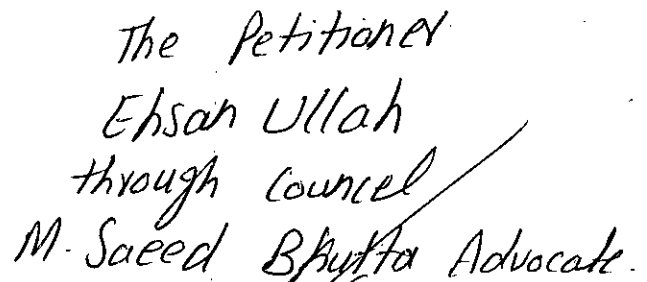 The Petitioner
Ehsan Ullah
through Councel
M. Saeed Bhutta Advocate.